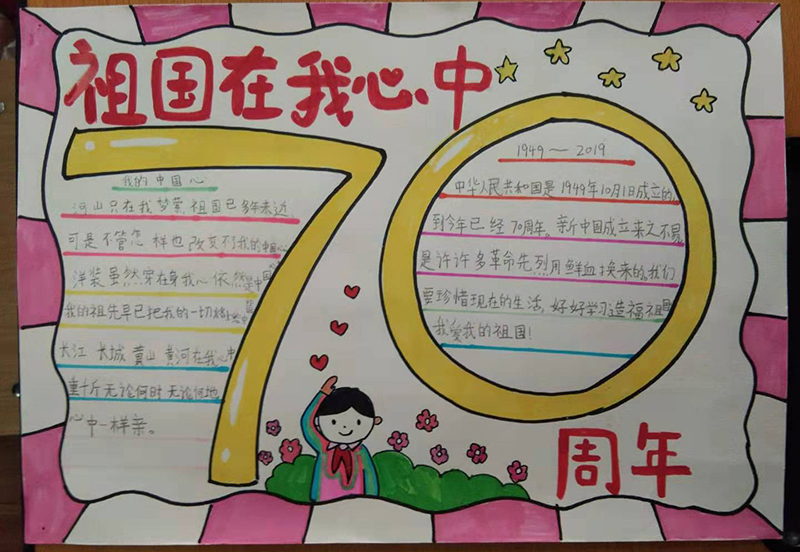 祖国在我心中
我的中国心
河山只在我梦萦祖国已多年未近
可是不管怎样也改变不了我的中国心
洋装虽然穿在身我心依然是中国
我的祖先早已把我的一切烙上中国
长江 长城 黄山 黄河在我心中
重千斤无论何时无论何地
心中一样亲。
1949～2019
中华人民共和国是1949年10月1日成立的,
到今年已经70周年。新中国成立来之不易,
是许许多多革命先烈用鲜血换来的。我们
要珍惜现在的生活,好好学习造福祖国
我爱我的祖国!
70
周年